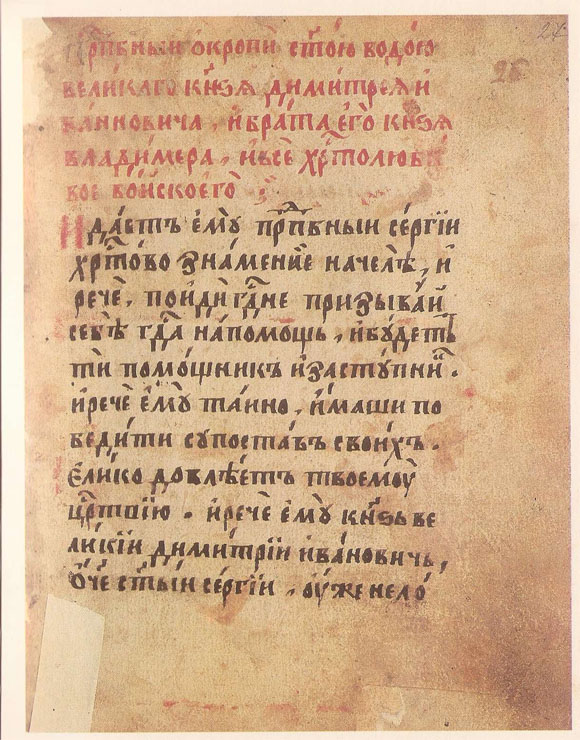 27
26
прⷣпбныи окропи ст҃ою водо́ю
вели́каго кн҃ѕѧ дими́треѧ и҆
ва́нновича , и҆ бра́та є҆го̀ кн҃ѕѧ
влади́мера , и҆ всѐ хрⷭ҇толюби
вое во́йско є҆го̀
И да́стъ є҆мꙋ̀ прпⷣбныи се́ргїи
хрⷭ҇то́во зна́менїе на челѣ̀ , и҆
речѐ . пои́ди гдⷭ҇не призыва́й
себѣ̀ гдⷭ҇а на́помощь , и҆ бꙋ́детъ
ти помо́щникъ и҆ застꙋ́пниⷦ҇ .
и҆ речѐ є҆мꙋ̀ та́ино . и҆́маши по
беди́ти сꙋпоста́въ свои́хъ .
є҆ли́ко довлѣ́етъ твоемоу̀
црⷭ҇твїю . и҆ речѐ є҆мꙋ̀ кн҃ѕь ве
ли́кїи дими́трїи ива́новичь ,
ѻ҆́ч҃е ст҃ы́и се́ргїи , оу҆́же не ло́